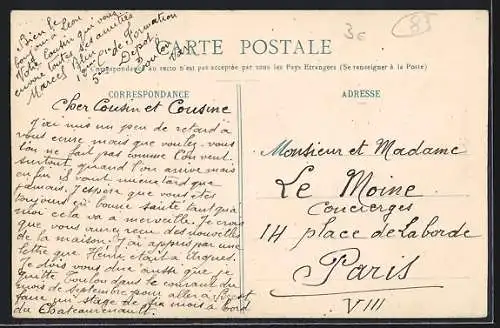 Bien le
bonjour à Léon
Votre cousin qui vous
envoie toutes ses amitiés
Marcel
Comp. de Formation
5e Dépot
Toulon
Var
3e
83
CARTE POSTALE
La correspondance au recto n'est pas acceptée par tous les Pays Etrangers (Se renseigner à la Poste)
CORRESPONDANCE
ADRESSE
Cher Cousin et Cousine
J'ai mis un peu de retard à
vous écrire mais que voulez-vous
l'on ne fait pas comme l'on veut
surtout quand l'on arrive mais
enfin il vaut mieux tard que
jamais. J'espère que vous êtes
toujours en bonne santé tant qu'à
moi cela va à merveille. Je crois
que vous avez reçu des nouvelles
de la maison. J'ai appris par une
lettre que Henri était à
Je dois vous dire aussi que je
quitte Toulon dans le courant du
mois de Septembre pour aller à Brest
faire un stage de six mois à bord
du Chateaurenault.
Monsieur et Madame
Le Moine
Concierges
14 place de laborde
Paris
VIII